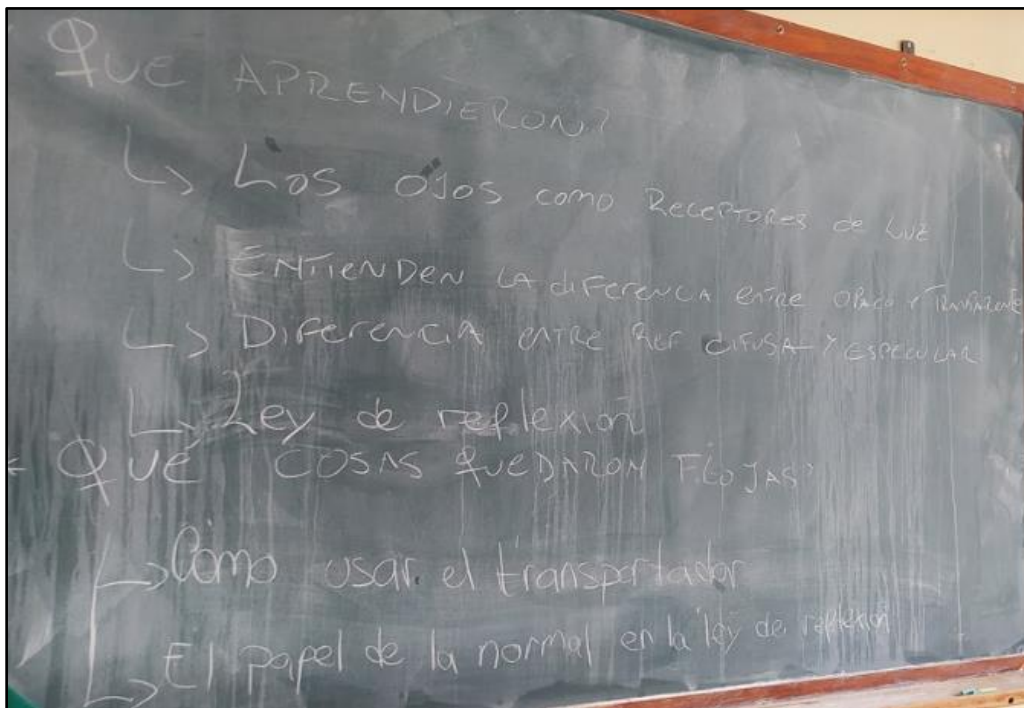 QUE APRENDIERON?
↳ LOS OJOS COMO RECEPTORES de LUZ
↳ ENTIENDEN LA diFERENCIA ENTRE OPACO Y TRANSPARENTE
↳ DIFERENCIA ENTRE REF DIFUSA Y ESPECULAR
↳ Ley de reflexión
QUÉ COSAS QUEDARON FLOJAS?
↳ Cómo usar el transportador
↳ El papel de la normal en la ley de reflexión